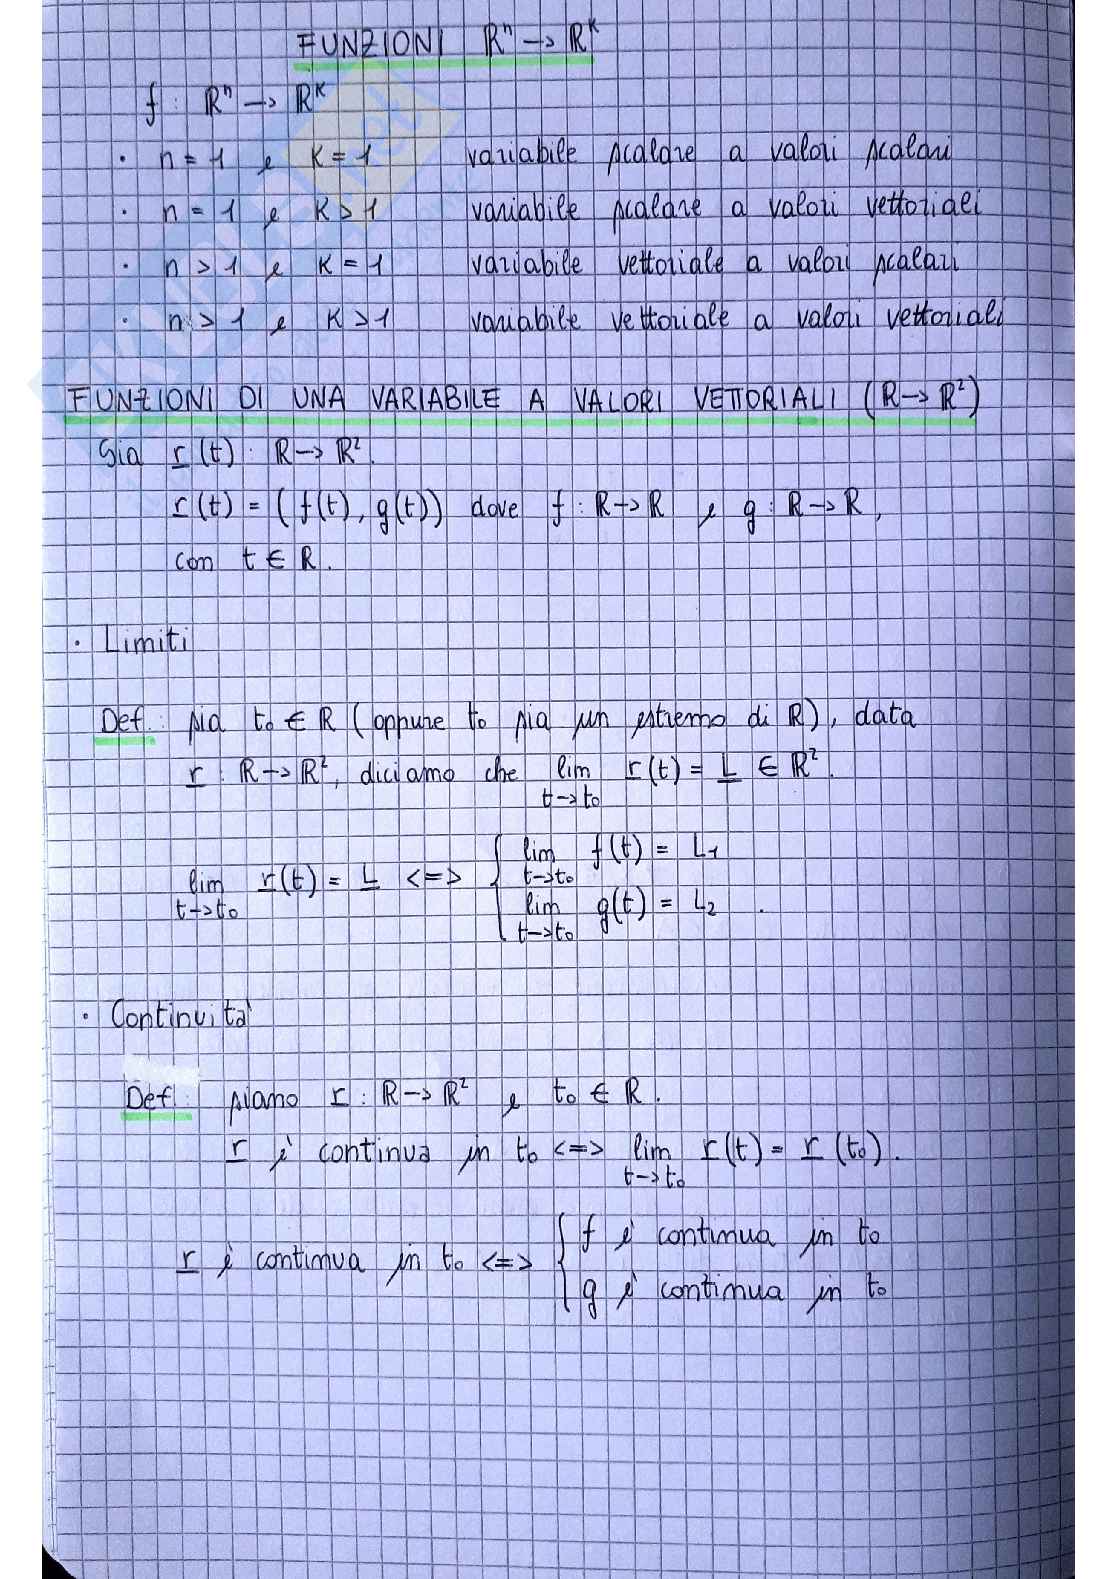 FUNZIONI ℝⁿ → ℝᴷ
f : ℝⁿ → ℝᴷ
· n = 1 e K = 1 variabile scalare a valori scalari
· n = 1 e K > 1 variabile scalare a valori vettoriali
· n > 1 e K = 1 variabile vettoriale a valori scalari
· n > 1 e K > 1 variabile vettoriale a valori vettoriali
FUNZIONI DI UNA VARIABILE A VALORI VETTORIALI (ℝ → ℝ²)
Sia r(t) : ℝ → ℝ².
r(t) = (f(t), g(t)) dove f : ℝ → ℝ e g : ℝ → ℝ,
con t ∈ ℝ.
· Limiti
Def.: sia t₀ ∈ ℝ (oppure t₀ sia un estremo di ℝ), data
r : ℝ → ℝ², diciamo che lim r(t) = L ∈ ℝ².
t → t₀
lim f(t) = L₁
t → t₀
lim r(t) = L <=>
t → t₀
lim g(t) = L₂ .
t → t₀
· Continuità
Def.: siamo r : ℝ → ℝ² e t₀ ∈ ℝ.
r è continua in t₀ <=> lim r(t) = r(t₀).
t → t₀
f è continua in t₀
r è continua in t₀ <=>
g è continua in t₀